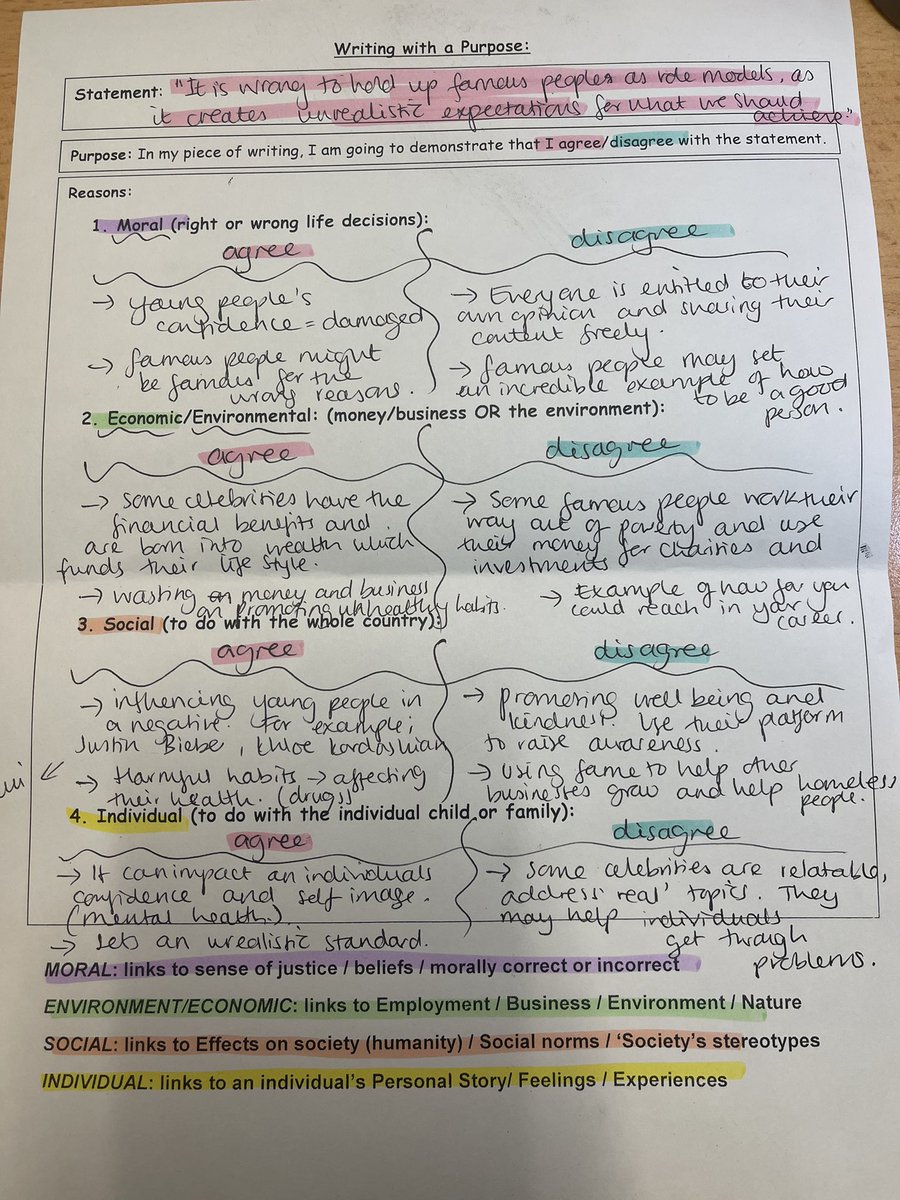 Writing with a Purpose:
Statement: "It is wrong to hold up famous peoples as role models, as
it creates unrealistic expectations for what we should
achieve."
Purpose: In my piece of writing, I am going to demonstrate that I agree/disagree with the statement.
Reasons:
1. Moral (right or wrong life decisions):
agree
→ young people's
confidence = damaged
→ famous people might
be famous for the
wrong reasons.
disagree
→ Everyone is entitled to their
own opinion and sharing their
content freely.
→ famous people may set
an incredible example of how
to be a good
person.
2. Economic/Environmental: (money/business OR the environment):
agree
→ some celebrities have the
financial benefits and
are born into wealth which
funds their life style.
→ wasting on money and business
on promoting unhealthy habits.
disagree
→ Some famous people work their
way out of poverty and use
their money for charities and
investments
→ Example of how far you
could reach in your
career.
3. Social (to do with the whole country):
agree
→ influencing young people in
a negative. For example;
Justin Bieber, Khloe Kardashian
→ Harmful habits → affecting
their health. (drugs)
disagree
→ promoting well being and
kindness. Use their platform
to raise awareness.
→ using fame to help other
businesses grow and help homeless
people.
4. Individual (to do with the individual child or family):
agree
→ It can impact an individuals
confidence and self image.
(mental health.)
→ sets an unrealistic standard.
disagree
→ some celebrities are relatable,
address 'real' topics. They
may help individuals
get through
problems.
MORAL: links to sense of justice / beliefs / morally correct or incorrect
ENVIRONMENT/ECONOMIC: links to Employment / Business / Environment / Nature
SOCIAL: links to Effects on society (humanity) / Social norms / 'Society's stereotypes
INDIVIDUAL: links to an individual's Personal Story/ Feelings / Experiences